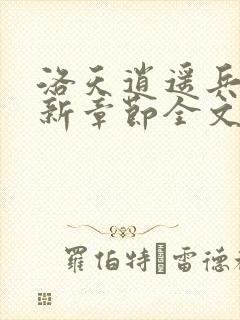 洛天逍遥兵
新章節全文
羅伯特·雷德